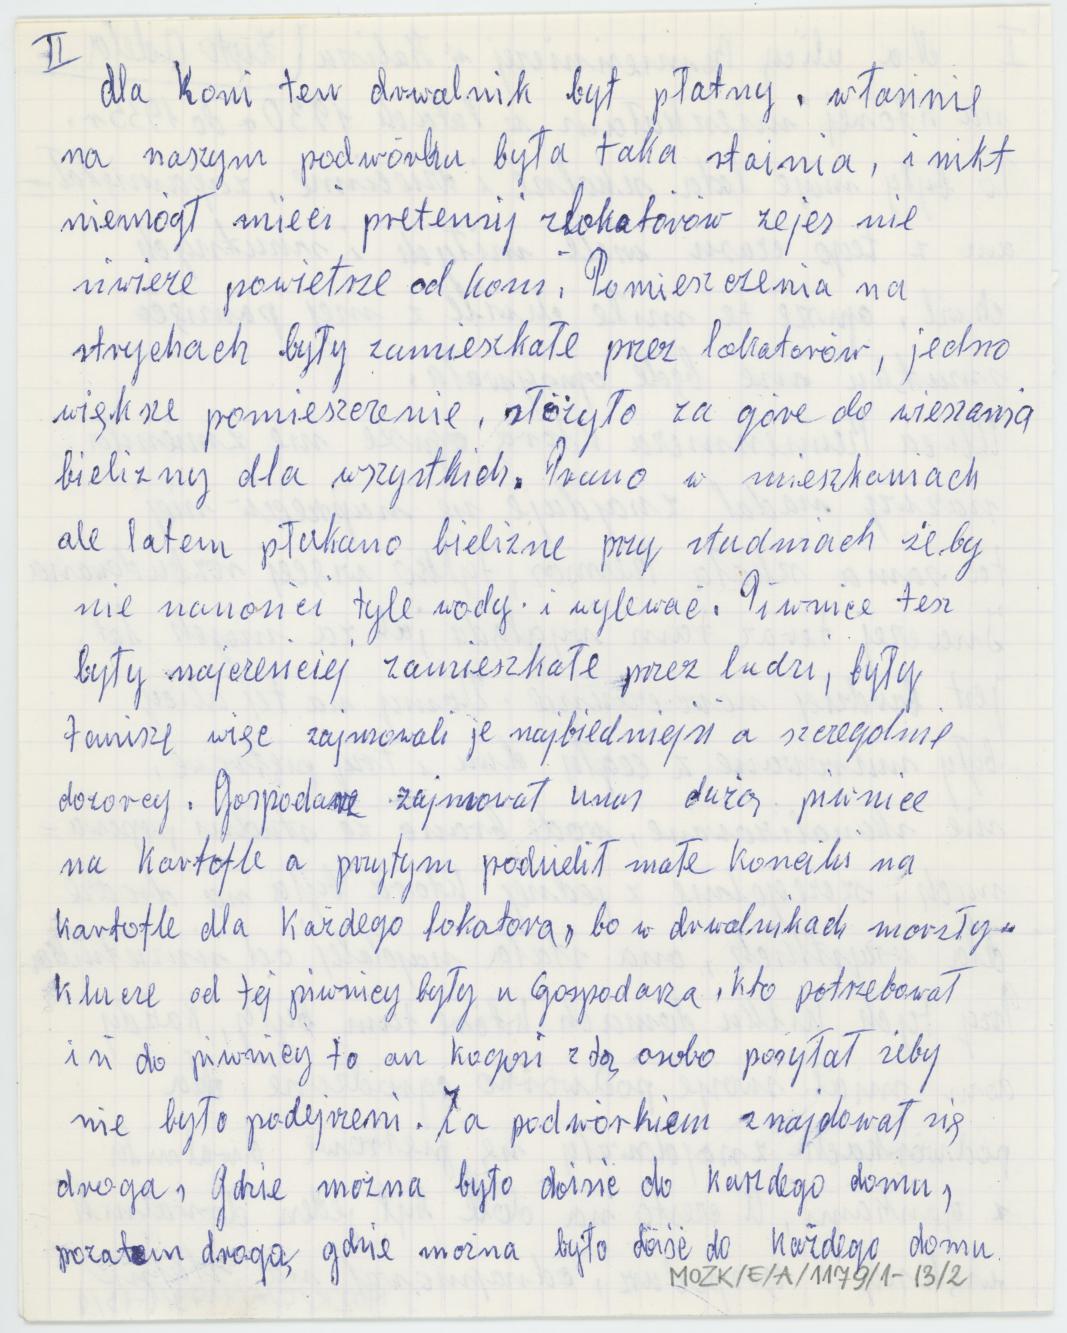 II
dla Koni ten drwalnik był płatny. własnię
na naszym podwórku była taka stainia, i nikt
niemógł mieci pretensij zlokatorów zejes nie
swieze powietsze od koni. Pomieszczenia na
strychach były zamieszkałe przez lokatorów, jedno
większe pomieszczenie, słóżyło za góre do wieszania
bielizny dla wszystkich. Prano w mieszkaniach
ale latem płukano bielizne przy studniach żeby
nie nanosici tyle wody. i wylewać. Piwnice tesz
były najczensciej zamieszkałe przez ludzi, były
tanisze więc zajmowali je najbiedniejsi a szczegolnię
dozorcy. Gospodarz zajmował unas dużą piwnice
na Kartofle a przytym podzielił małe Konciki na
kartofle dla Każdego lokatora, bo w drwalnikach marzły-
klucze od tej piwnicy były u Gospodarza, kto potrzebował
isi do piwnicy to on kogosi z tą osobo posyłał zeby
nie było podejrzeni. Za podwórkiem znajdował się
droga, gdzie można było dóisić do każdego domu,
pozatem droga, gdzie mozna było dóisć do każdego domu.
MOZK/E/A/1179/1-13/2